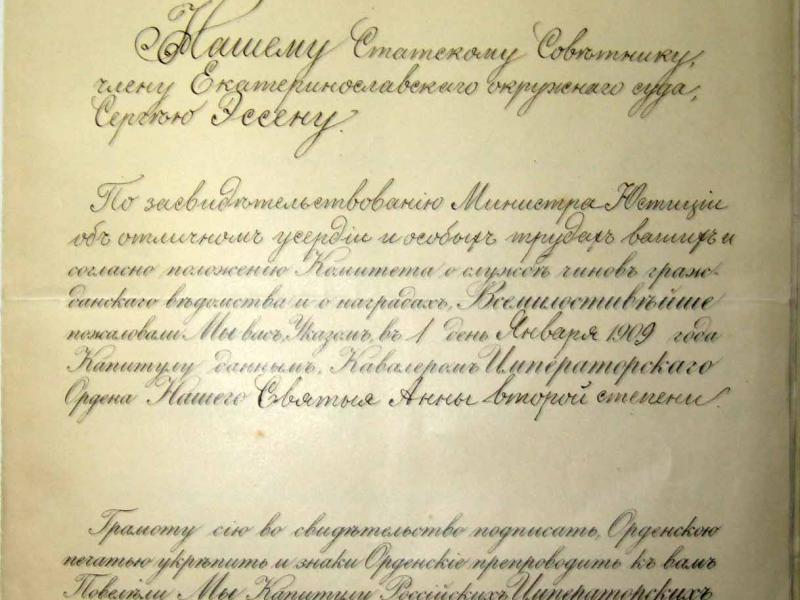 Нашему Статскому Совѣтнику,
члену Екатеринославскаго окружнаго суда,
Сергѣю Эссену.
По засвидѣтельствованію Министра Юстиціи
объ отличномъ усердіи и особыхъ трудахъ вашихъ и
согласно положенію Комитета о службѣ чиновъ граж-
данскаго вѣдомства и о наградахъ, Всемилостивѣйше
пожаловали Мы васъ, Указомъ, въ 1 день Января 1909 года
Капитулу даннымъ, Кавалеромъ Императорскаго
Ордена Нашего Святыя Анны второй степени.
Грамоту сію во свидѣтельство подписать, Орденскою
печатью укрѣпить и знаки Орденскіе препроводить къ вамъ
Повелѣли Мы Капитулу Россійскихъ Императорскихъ